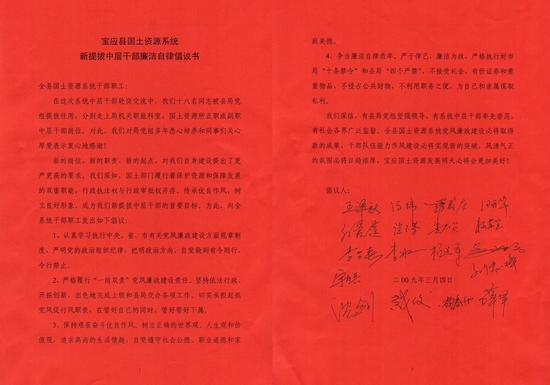 宝应县国土资源系统
新提拔中层干部廉洁自律倡议书
全县国土资源系统干部职工:
在这次系统中层干部轮岗交流中,我们十八名同志被县局党
组提拔任用,分别走上局机关职能科室、国土资源所正职或副职
中层干部岗位。对此,我们对局党组多年悉心培养和同事们关心
厚爱表示衷心地感谢!
新的岗位、新的职责、新的起点,对我们自身建设提出了更
严更高的要求。我们深知,国土部门履着保护资源和保障发展
的双重职能,行政执法权与行政审批权并存,传承优良作风,树
立良好形象,成为我们新提拔中层干部的首要目标。为此,向全
系统干部职工发出如下倡议:
1、认真学习执行中央、省、市有关党风廉政建设方面规章制
度,严明党的政治组织纪律,把明政治方向,自觉做到有令则行、
令行禁止。
2、严格履行“一岗双责”党风廉政建设责任。坚持依法行政、
开拓创新,出色地完成上级和县局交办各项工作,切实承担起抓
党风促行风职责,在管好自己的同时,管好带好下属。
3、保持艰苦奋斗优良作风。树立正确的世界观、人生观和价
值观,追求高尚的生活情趣,自觉遵守社会公德、职业道德和家
庭美德。
4、争当廉洁自律表率。严于律己,廉洁为政,严格执行好市
局“十条禁令”和县局“四个严禁”,不接受礼金、有价证券和贵
重物品,不侵占公共财物,不利用职务之便,为自己和亲属谋取
私利。
我们深信,有县局党组坚强领导,有系统中层干部率先垂范,
有社会各界广泛监督,全县国土资源系统党风廉政建设必将取得
新的成果,干部队伍能力作风建设必将实现新的突破,风清气正
的氛围必将日趋浓厚,宝应国土资源发展明天必将会更加美好!
倡议人:
二00九年三月四日